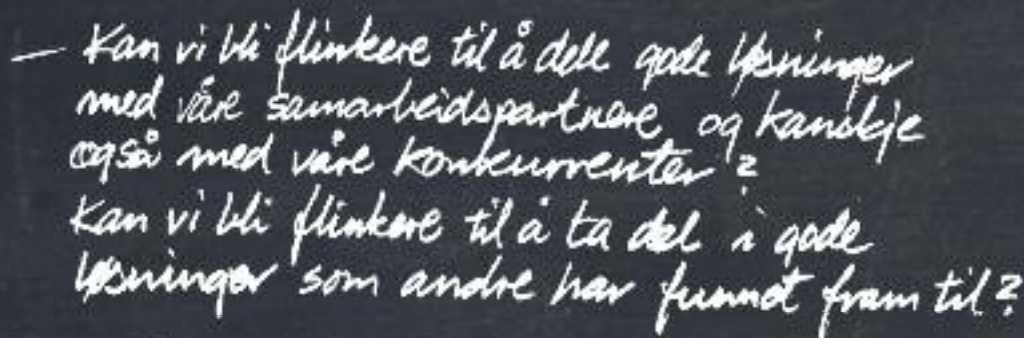 — Kan vi bli flinkere til å dele gode løsninger
med våre samarbeidspartnere og kanskje
også med våre konkurrenter?
Kan vi bli flinkere til å ta del i gode
løsninger som andre har funnet fram til?